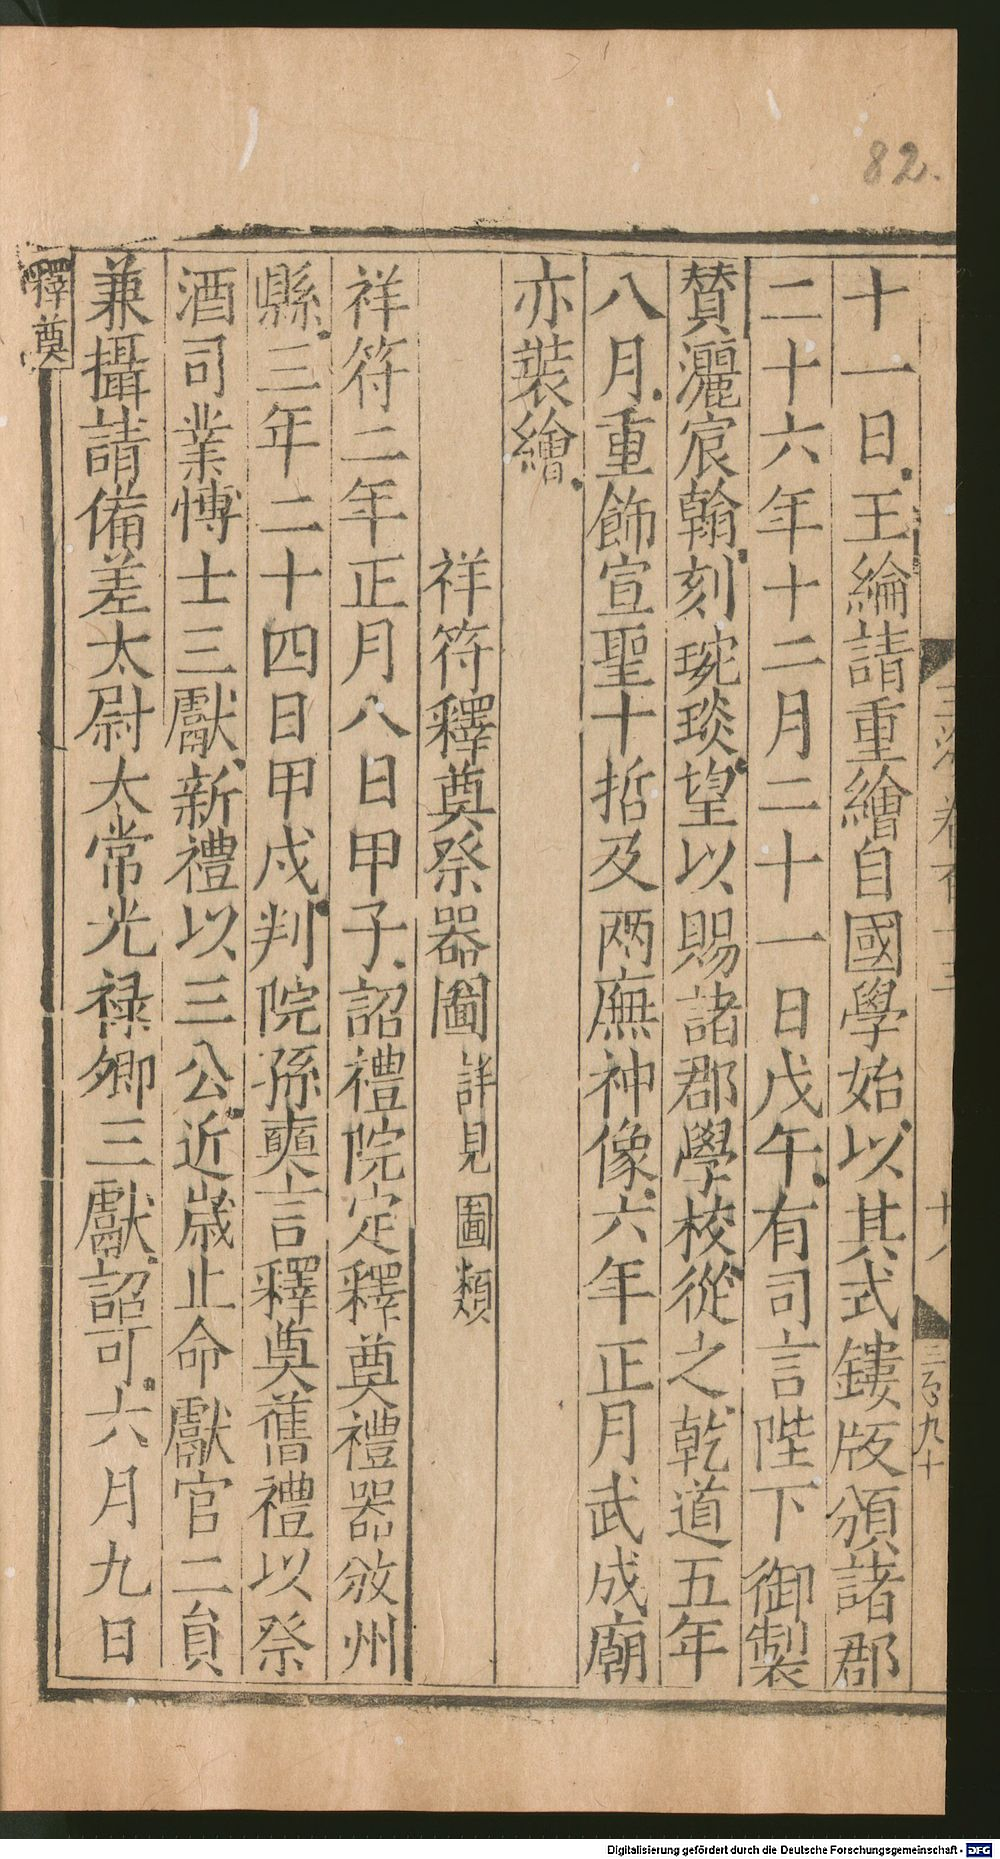 82.
十一日王綸請重繪自國學始以其式鏤版頒諸郡
二十六年十二月二十一日戊午有司言陛下御製
贊灑宸翰刻琬琰望以賜諸郡學校從之乾道五年
八月重飾宣聖十哲及两廡神像六年正月武成廟
亦裝繪
祥符釋奠祭器圖詳見圖類
祥符二年正月八日甲子詔禮院定釋奠禮器㪇州
縣三年二十四日甲戍判院孫奭言釋奠舊禮以祭
酒司業博士三獻新禮以三公近歲止命獻官二員
兼攝請備差太尉大常光祿卿三獻詔可六月九日
釋奠
十八
Digitalisierung gefördert durch die Deutsche Forschungsgemeinschaft - DFG